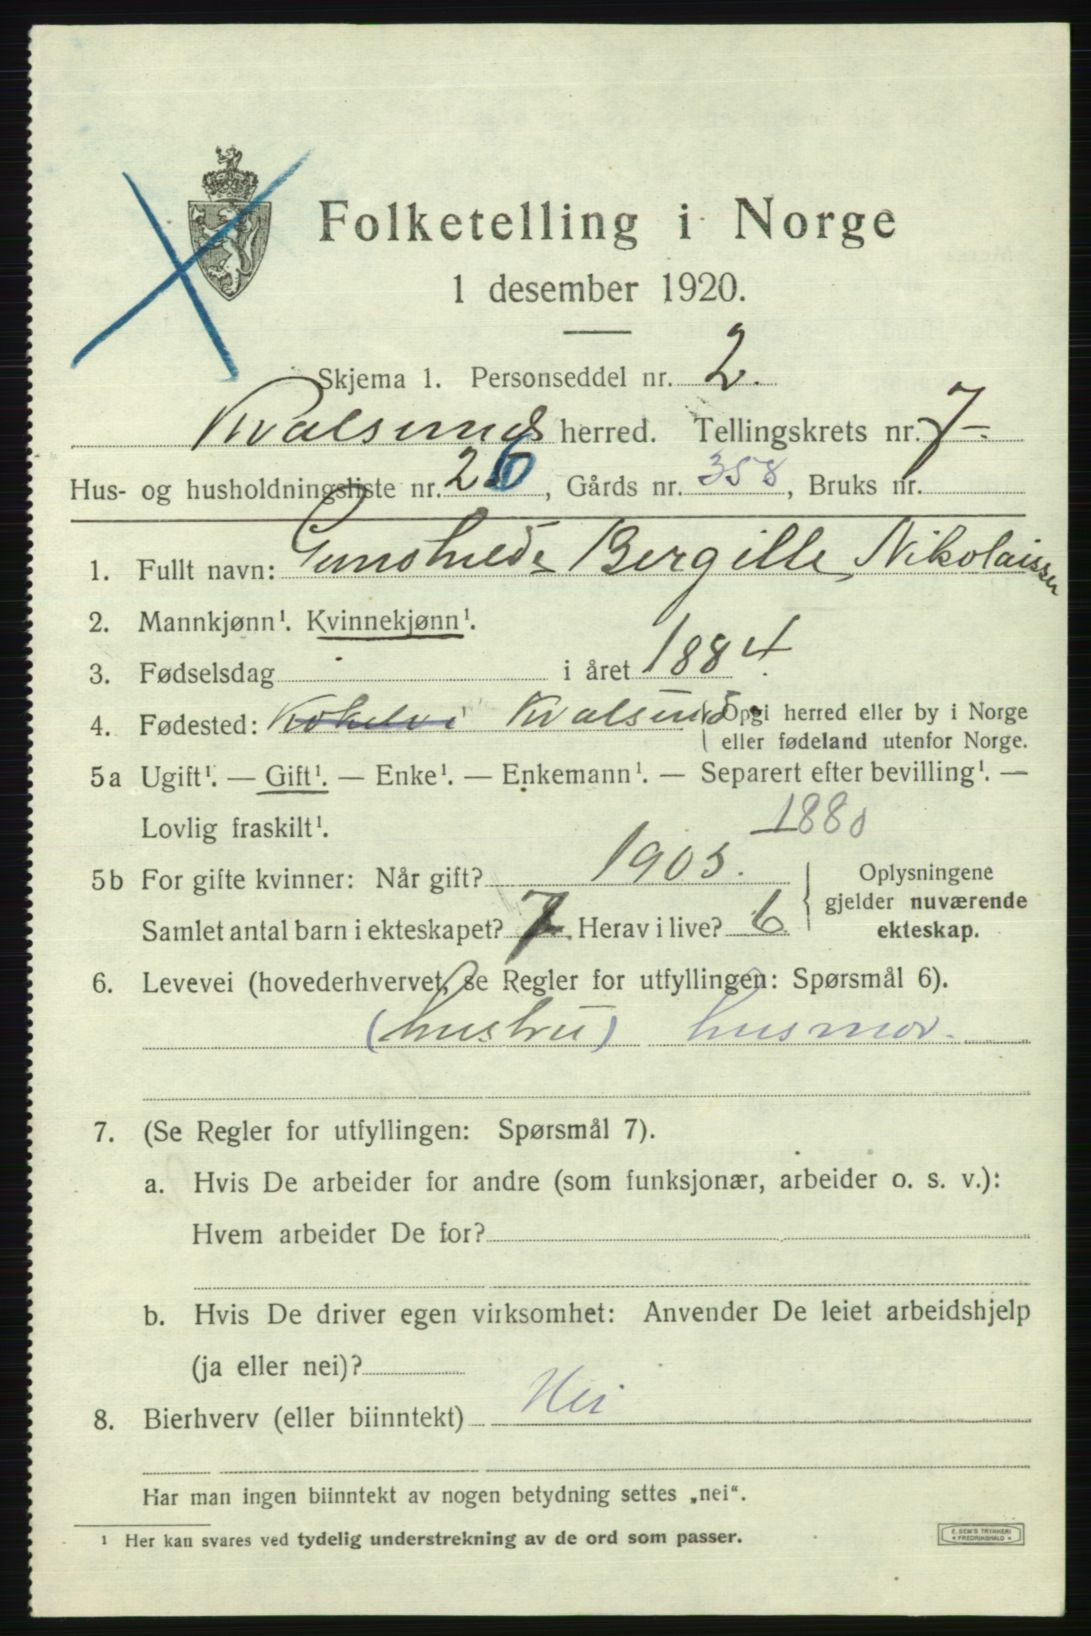 Folketelling i Norge
1 desember 1920.
Skjema 1. Personseddel nr. 2.
Kvalsund herred. Tellingskrets nr. 7.
Hus- og husholdningsliste nr. 26, Gårds nr. 358, Bruks nr.
1. Fullt navn: Bergille Nikolaissen
2. Mannkjønn¹. Kvinnekjønn¹.
3. Fødselsdag i året 1884.
4. Fødested: Kokelvi Kvalsund { Opgi herred eller by i Norge
eller fødeland utenfor Norge.
5a Ugift¹. — Gift¹. — Enke¹. — Enkemann¹. — Separert efter bevilling¹. —
Lovlig fraskilt¹. 1880
5b For gifte kvinner: Når gift? 1905. Oplysningene
gjelder nuværende
Samlet antal barn i ekteskapet? 7. Herav i live? 6 ekteskap.
6. Levevei (hovederhvervet, se Regler for utfyllingen: Spørsmål 6).
(hustru) husmor.
7. (Se Regler for utfyllingen: Spørsmål 7).
a. Hvis De arbeider for andre (som funksjonær, arbeider o. s. v.):
Hvem arbeider De for?
b. Hvis De driver egen virksomhet: Anvender De leiet arbeidshjelp
(ja eller nei)?
8. Bierhverv (eller biinntekt) Nei
Har man ingen biinntekt av nogen betydning settes „nei“.
¹ Her kan svares ved tydelig understrekning av de ord som passer.
E. SEM'S TRYKKERI
FREDRIKSHALD